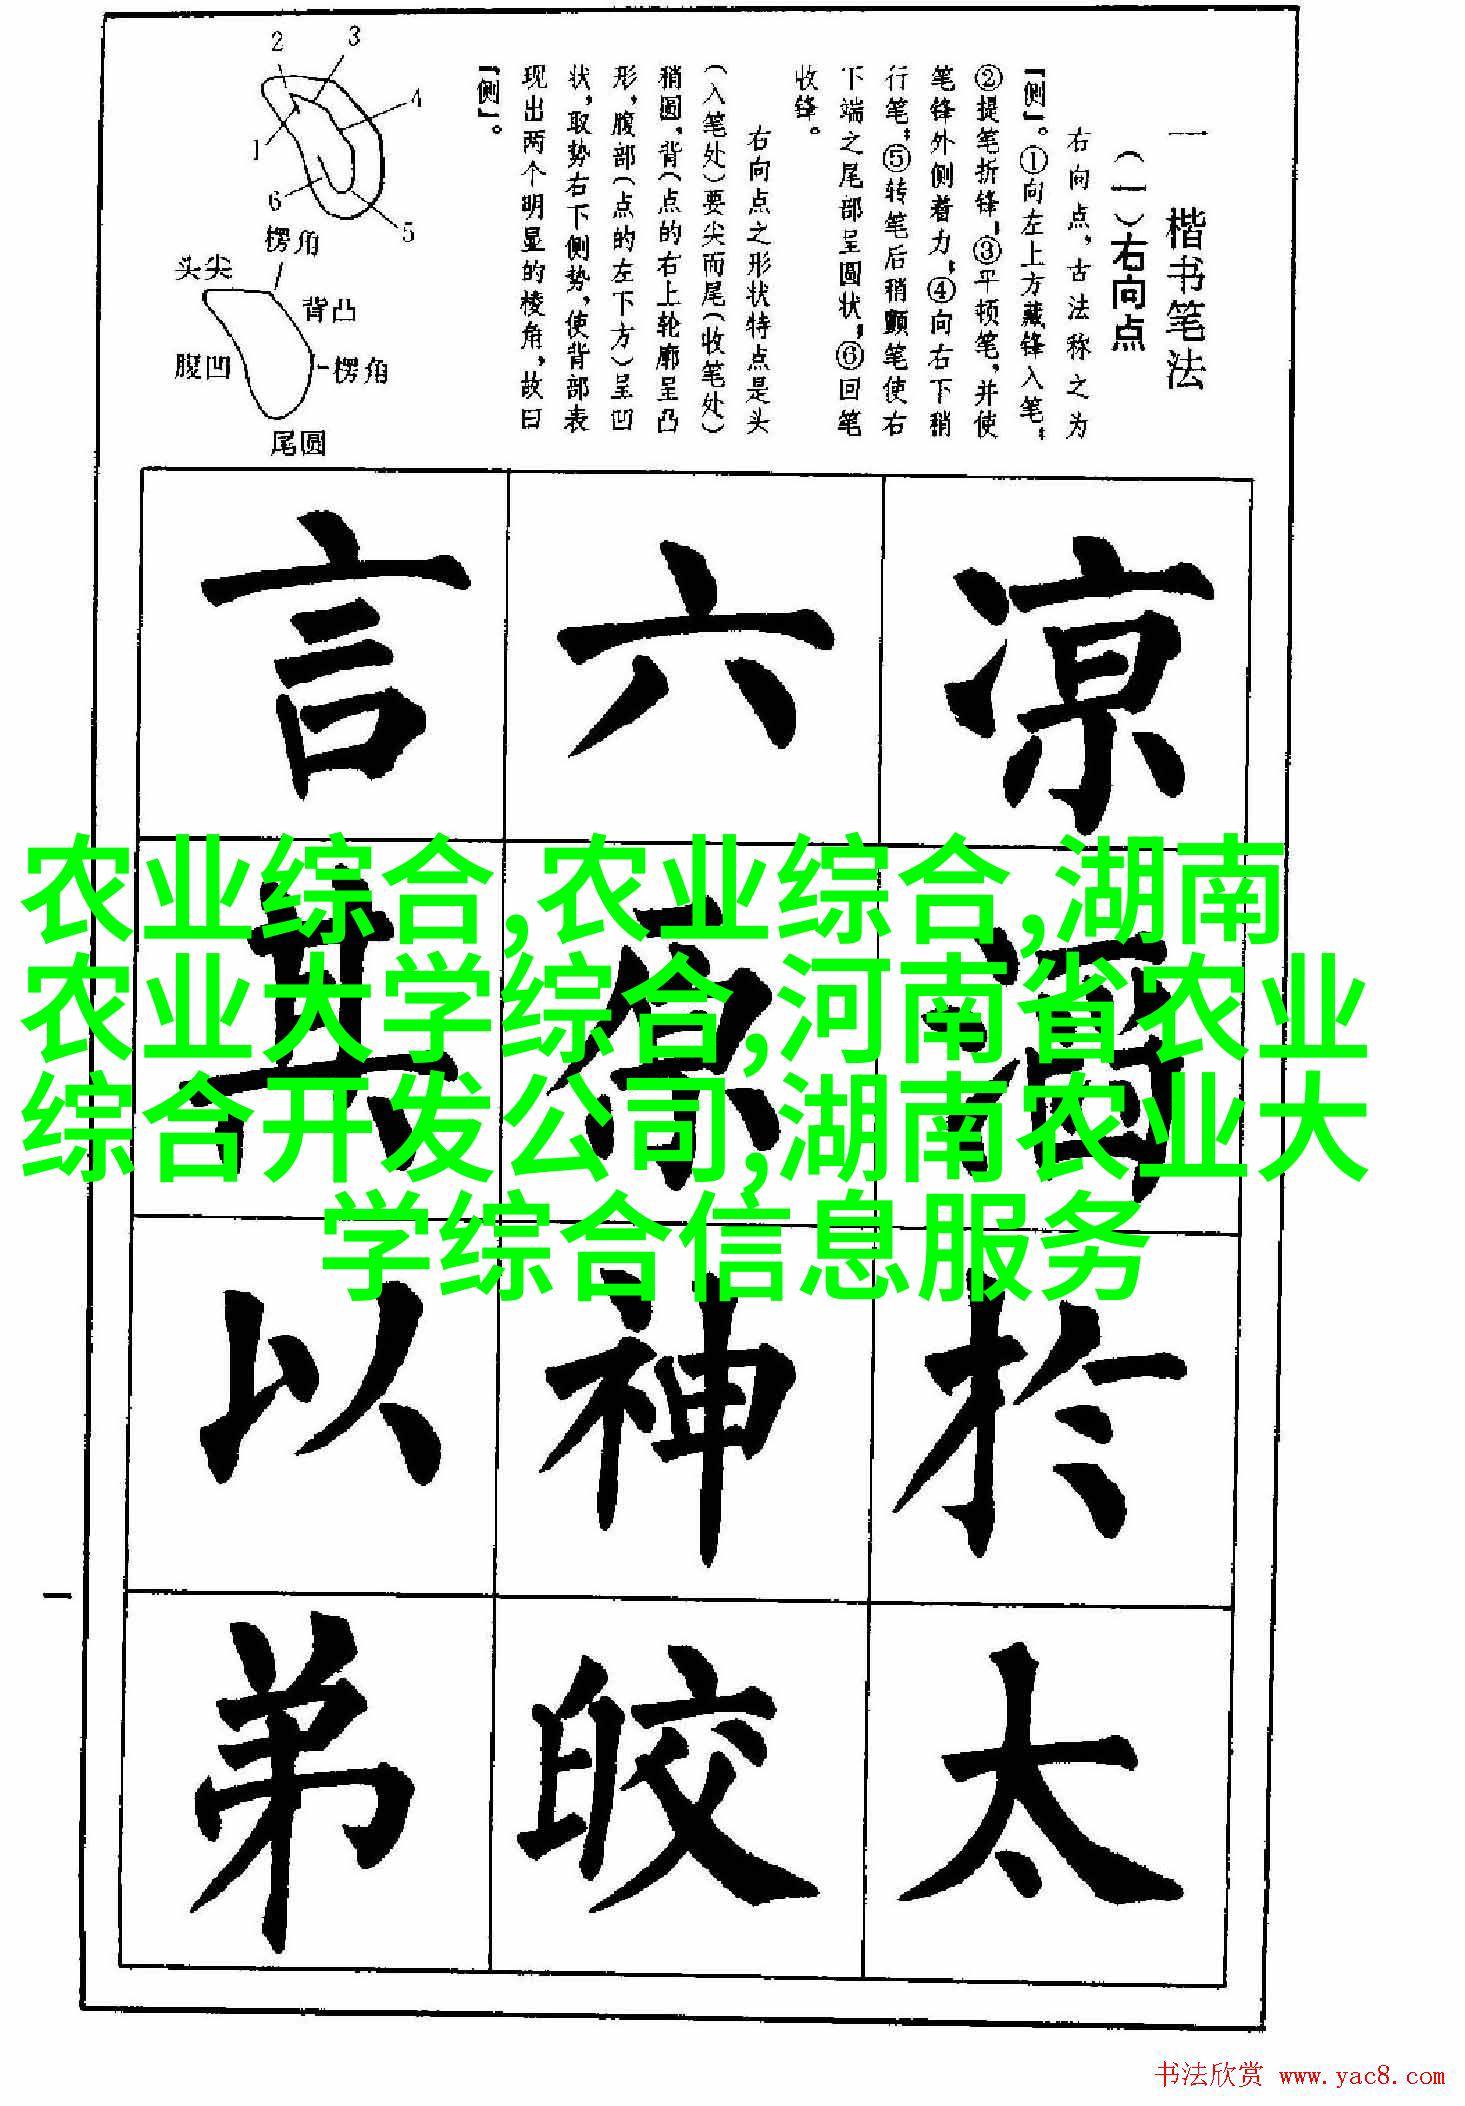 一 楷书笔法
（一）右向点
右向点，古法称之为
「侧」。①向左上方藏锋入笔；
②提笔折锋；③平顿笔，并使
笔锋外侧着力；④向右下稍
行笔；⑤转笔后稍颤笔使右
下端之尾部呈圆状；⑥回笔
收锋。
右向点之形状特点是头
（入笔处）要尖而尾（收笔处）
稍圆，背（点的右上轮廓呈凸
形，腹部（点的左下方）呈凹
状，取势右下侧势，使背部表
现出两个明显的棱角，故曰
「侧」。
2
3
4
1
6
5
楞角
头尖
背凸
腹凹
楞角
尾圆
凉 六 言
农业综合,农业综合,湖南
农业大学综合,河南省农业
综合开发公司,湖南农业大
学综合信息服务
於 神 以
太 皎 弟
一
书法欣赏 www.yac8.com